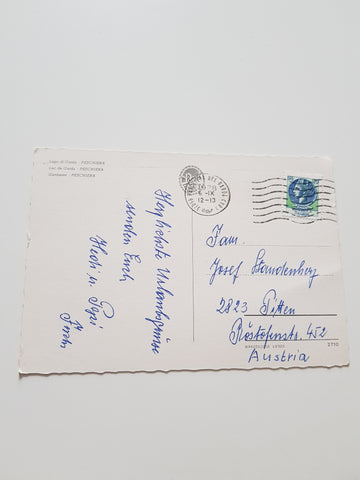 Lago di Garda - PESCHIERA
Lac de Garda - PESCHIERA
Gardasee - PESCHIERA
Herzlichste Urlaubsgrüsse
senden Euch
Hedi u. Pepi
12-13
Fam.
Josef Brandenberg
2823 Pitten
Austria
2710